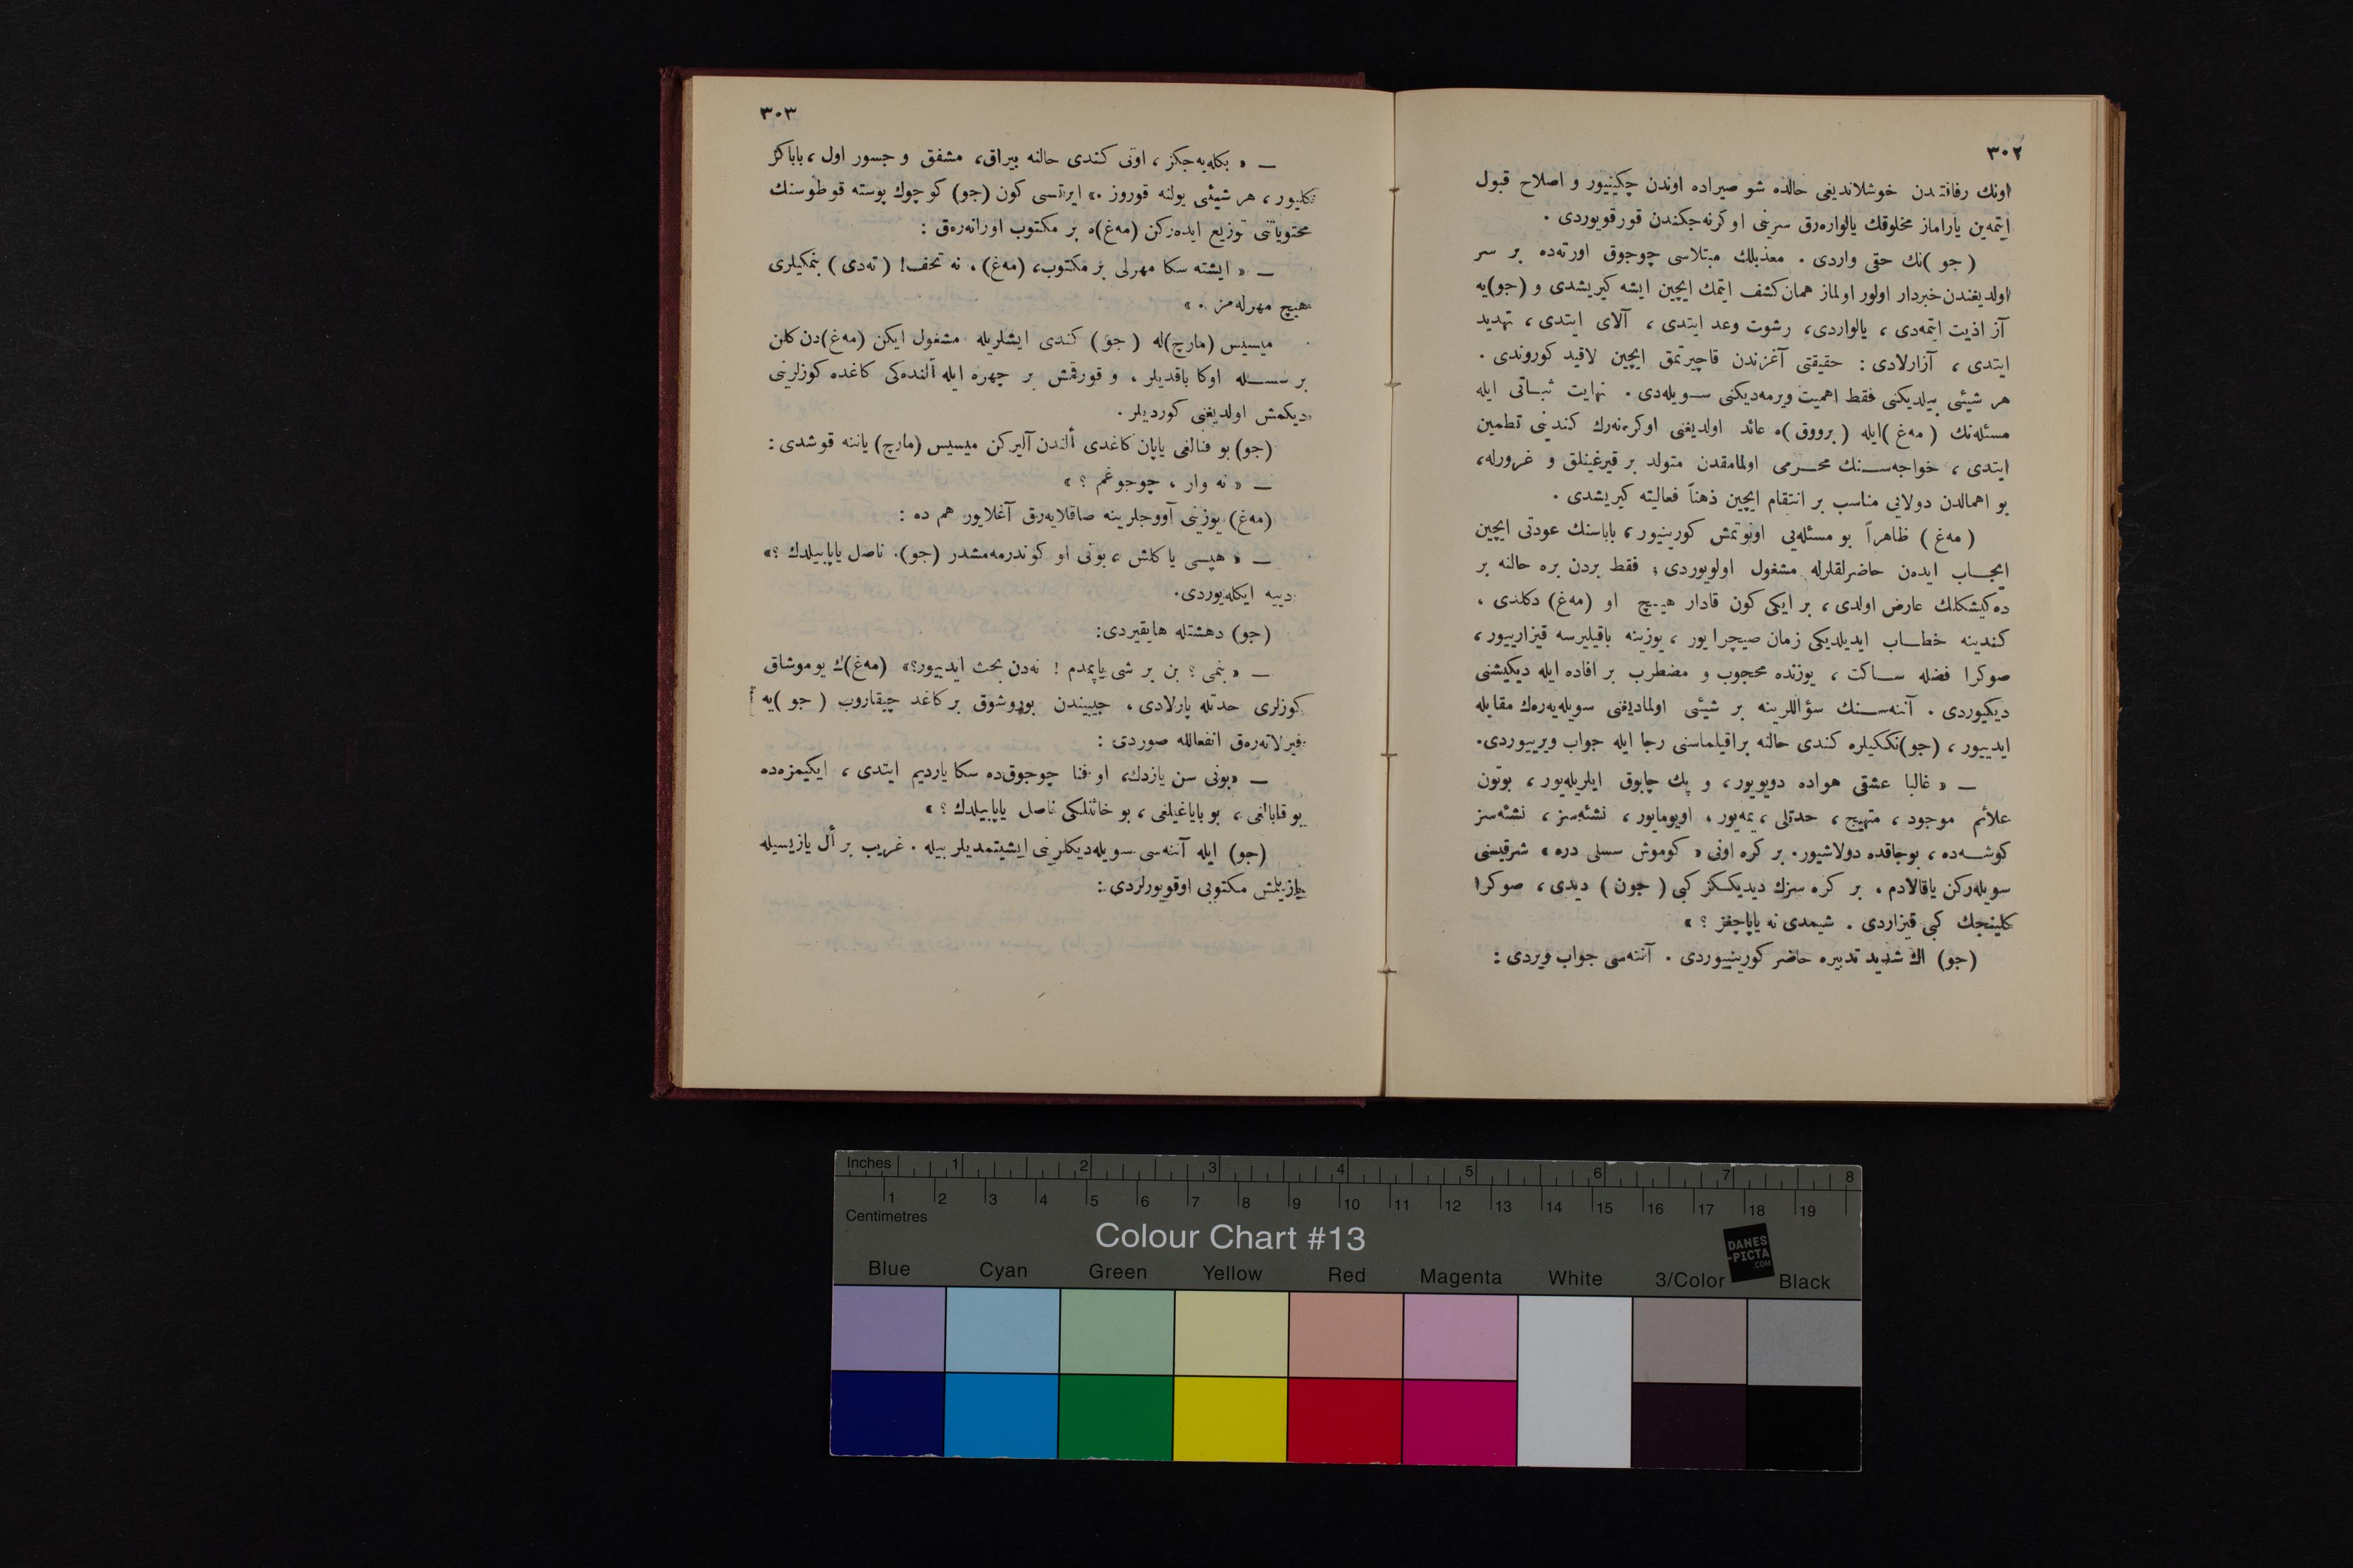 ٣٠٢
اونك رفاقتدن خوشلانديغى حالده شو صيراده اوندن چكينيور و اصلاح قبول
ايتمه‌ين ياراماز مخلوقك يالواره‌رق سرينى اوكرنه‌جكندن قورقويوردى .
( جو )نك حقى واردى . معذبلك مبتلاسى چوجوق اورته‌ده بر سر
اولديغندن خبردار اولور اولماز همان كشف ايتمك ايچين ايشه كيريشدى و (جو)يه
آز اذيت ايتمه‌دى ، يالواردى، رشوت وعد ايتدى ، آلاى ايتدى ، تهديد
ايتدى ، آزارلادى : حقيقتى آغزندن قاچيرتمق ايچين لاقيد كوروندى .
هر شيئى بيلديكنى فقط اهميت ويرمه‌ديكنى سويله‌دى . نهايت ثباتى ايله
مسئله‌نك ( مه‌غ )ايله ( برووق )ه عائد اولديغنى اوكره‌نه‌رك كندينى تطمين
ايتدى ، خواجه‌سنك محرمى اولمامقدن متولد بر قيرغينلق و غرورله،
بو اهمالدن دولايى مناسب بر انتقام ايچين ذهناً فعاليته كيريشدى .
( مه‌غ ) ظاهراً بو مسئله‌يى اونوتمش كورينيور، باباسنك عودتى ايچين
ايجاب ايده‌ن حاضرلقلرله مشغول اولويوردى ؛ فقط بردن بره حالنه بر
ده‌كيشكلك عارض اولدى ، بر ايكى كون قادار هيچ او (مه‌غ) دكلدى .
كندينه خطاب ايديلديكى زمان صيچرايور ، يوزينه باقيليرسه قيزارييور ،
صوكرا فضله ساكت ، يوزنده محجوب و مضطرب بر افاده ايله ديكيشنى
ديكيوردى . آننه‌سنك سؤاللرينه بر شيئى اولماديغنى سويله‌يه‌رك مقابله
ايدييور ، (جو)نككيلره كندى حالنه براقيلماسنى رجا ايله جواب ويرييوردى.
— « غالبا عشقى هواده دويويور، و پك چابوق ايلريله‌يور ، بوتون
علائم موجود ، متهيج ، حدتلى ، يمه‌يور ، اويومايور ، نشئه‌سز ، نشئه‌سز
كوشه‌ده ، بوجاقده دولاشيور. بر كره اونى « كوموش سسلى دره » شرقيسنى
سويله‌ركن ياقالادم . بر كره سزك ديديككز كبى ( جون ) ديدى ، صوكرا
كلينجك كبى قيزاردى . شيمدى نه ياپاجغز ؟ »
(جو) اك شديد تدبيره حاضر كورينييوردى . آننه‌سى جواب ويردى :
٣٠٣
— « بكله‌يه‌جكز ، اونى كندى حالنه بيراق، مشفق و جسور اول ، باباكز
كليور ، هر شيئى يولنه قوروز .» ايرتسى كون (جو) كوچوك پوسته قوطوسنك
محتوياتنى توزيع ايده‌ركن (مه‌غ)ه بر مكتوب اوزاته‌رق :
— « ايشته سكا مهرلى بر مكتوب، (مه‌غ) ، نه تحف! ( ته‌دى ) بنمكيلرى
هيچ مهرله‌مز . »
ميسيس (مارچ)له ( جو ) كندى ايشلريله مشغول ايكن (مه‌غ)دن كلن
بر سسله اوكا باقديلر ، و قورقمش بر چهره ايله ألنده‌كى كاغده كوزلرينى
ديكمش اولديغنى كورديلر .
(جو) بو فنالغى ياپان كاغدى ألندن آليركن ميسيس (مارچ) ياننه قوشدى :
— « نه وار ، چوجوغم ؟ »
(مه‌غ) يوزينى آووجلرينه صاقلايه‌رق آغلايور هم ده :
— « هپسى ياكلش ، بونى او كوندرمه‌مشدر (جو). ناصل ياپابيلدك ؟»
دييه ايكله‌يوردى.
(جو) دهشتله هايقيردى:
— « بنمى ؟ بن بر شى ياپمدم ! نه‌دن بحث ايدييور؟» (مه‌غ)ك يوموشاق
كوزلرى حدتله پارلادى ، جيبيندن بوروشوق بر كاغد چيقاروب ( جو )يه
فيرلاته‌رق انفعالله صوردى :
— «بونى سن يازدك، او فنا چوجوق‌ده سكا يارديم ايتدى ، ايكيمزه‌ده
بو قابالغى ، بو باياغيلغى ، بو خائنلكى ناصل ياپابيلدك ؟ »
(جو) ايله آننه‌سى سويله‌ديكلرينى ايشيتمديلر بيله . غريب بر أل يازيسيله
يازيلمش مكتوبى اوقويورلردى :
Inches 1 2 3 4 5 6 7 8
1 2 3 4 5 6 7 8 9 10 11 12 13 14 15 16 17 18 19
Centimetres
Colour Chart #13
DANES
-PICTA
.COM
Blue Cyan Green Yellow Red Magenta White 3/Color Black